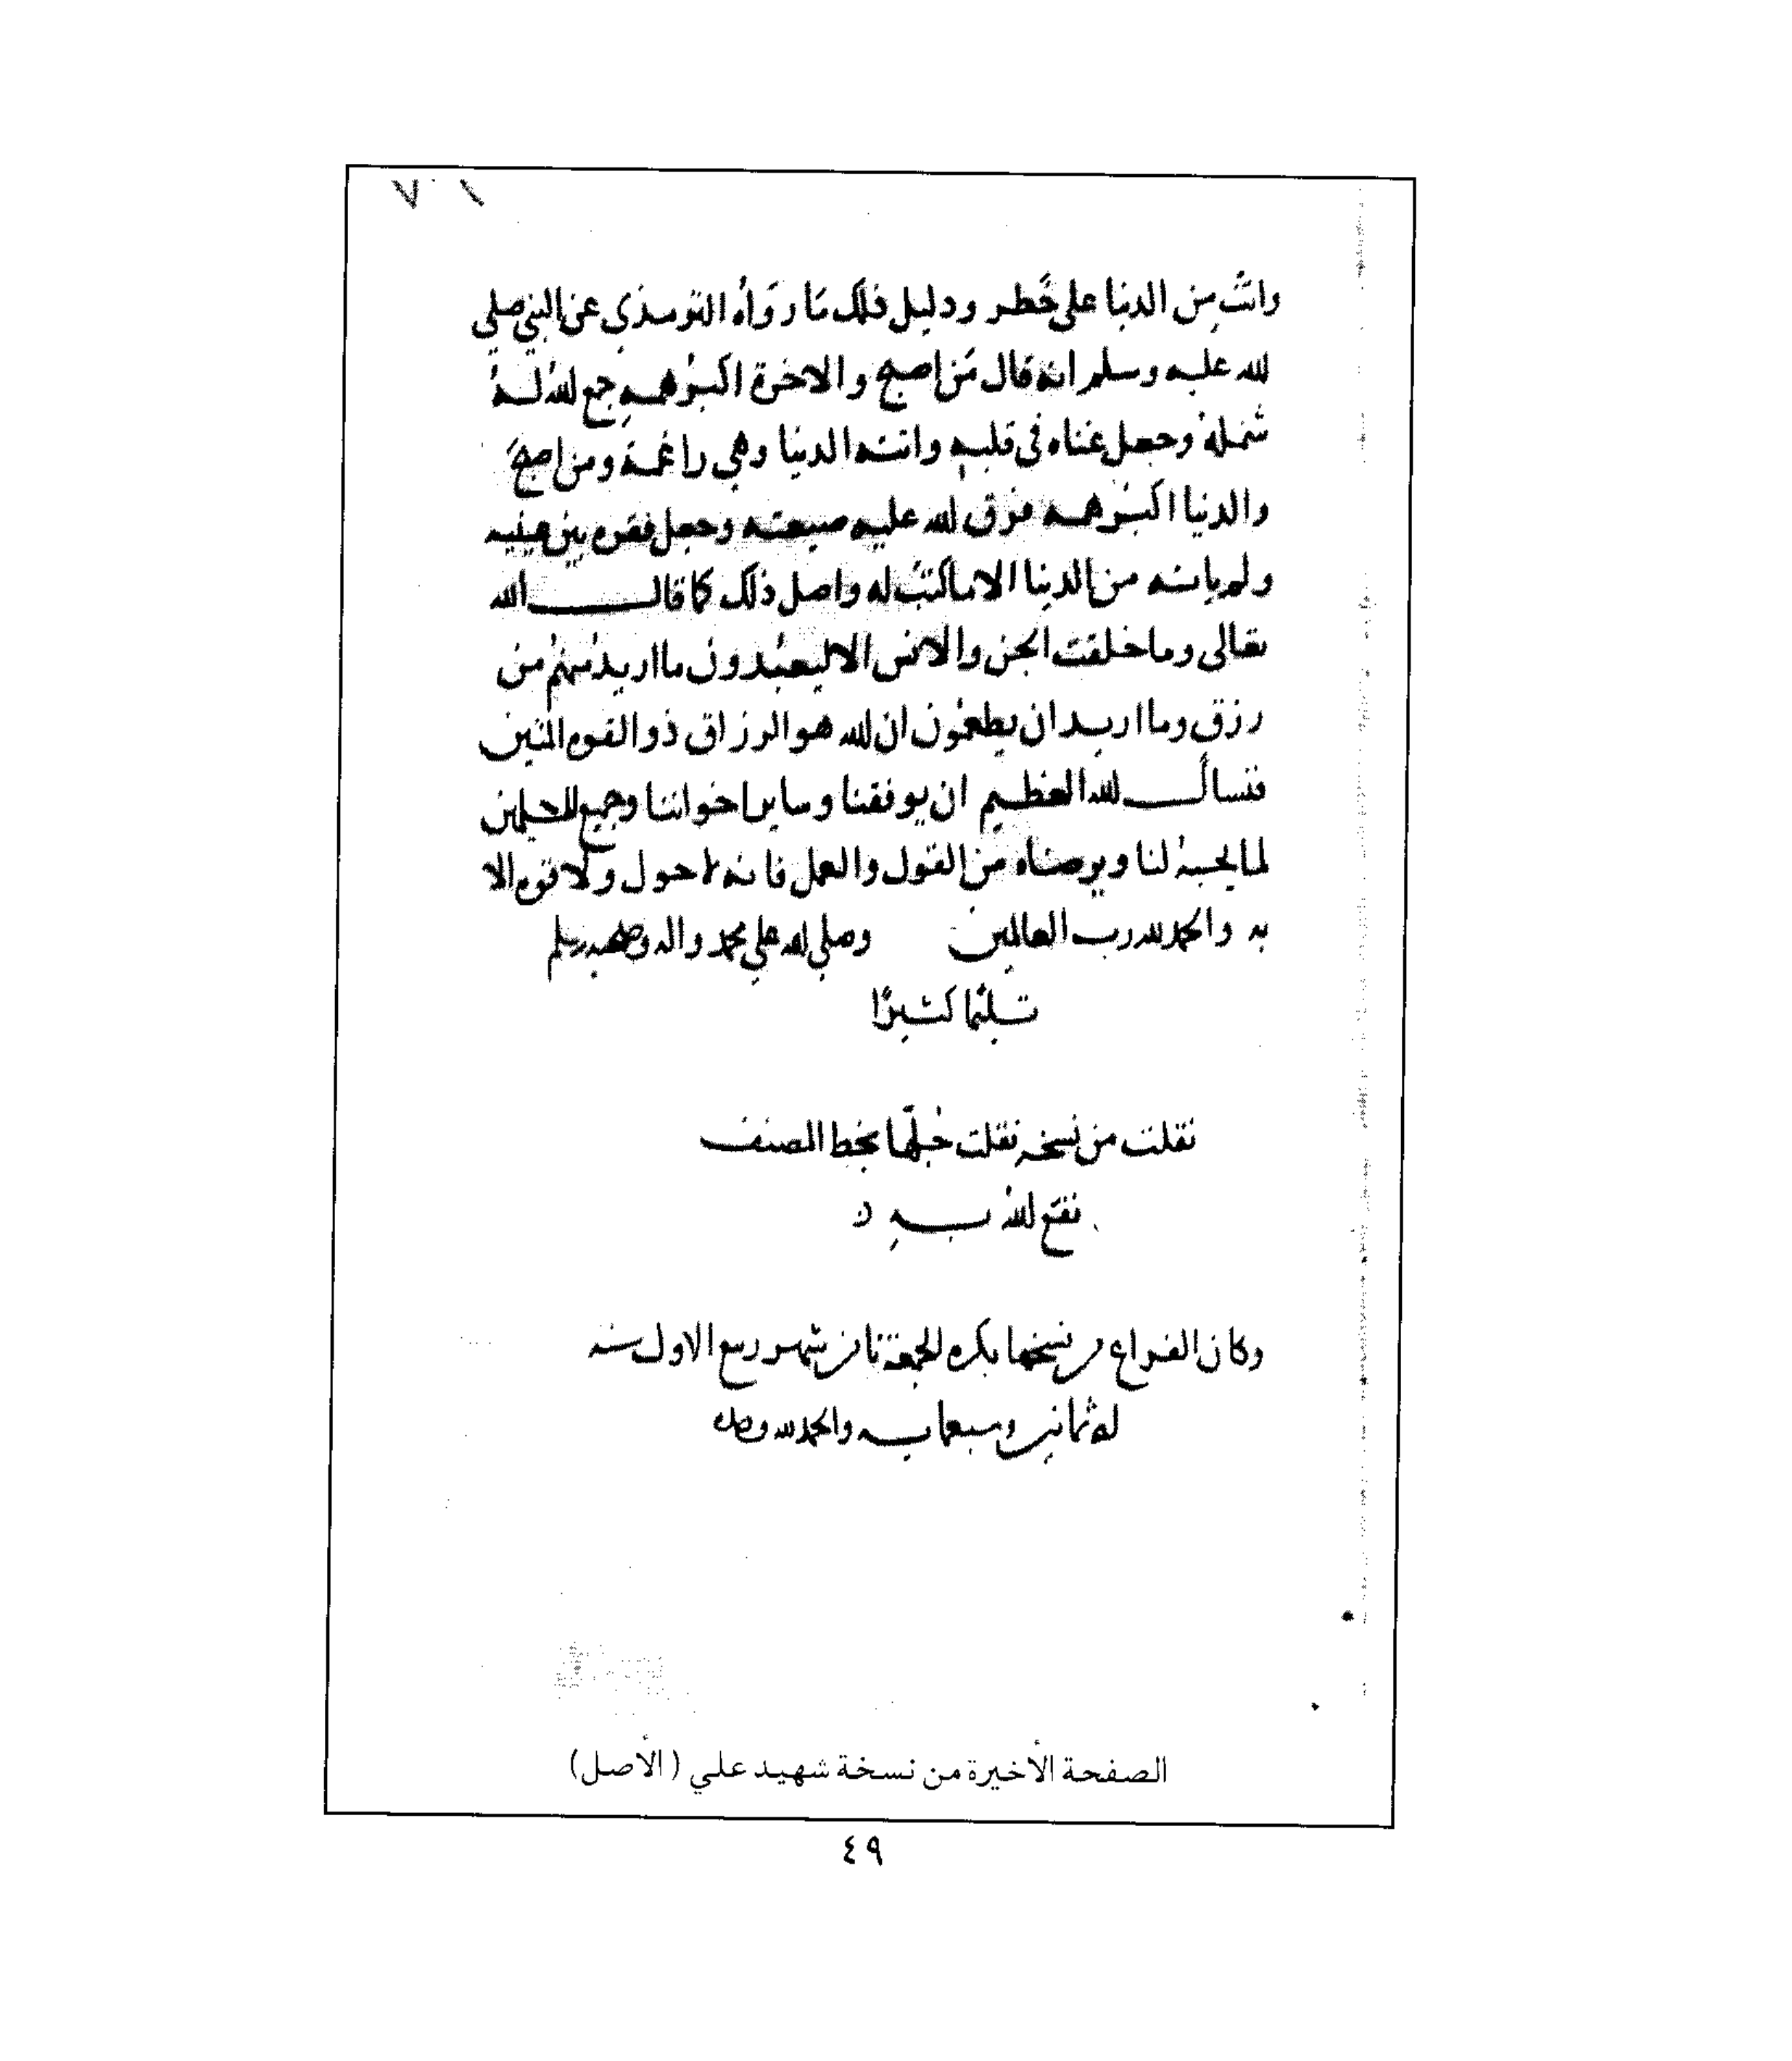 ١٠٧
وانت من الدنيا على خطر ودليل ذلك ما رواه الترمذي عن النبي صلي
الله عليه وسلم انه قال من اصبح والاخرة اكبر همه جمع الله له
شمله وجعل غناه في قلبه واتته الدنيا وهي راغمة ومن اصبح
والدنيا اكبر همه فرق الله عليه ضيعته وجعل فقره بين عينيه
ولم ياته من الدنيا الا ما كتب له واصل ذلك كما قال الله
تعالى وما خلقت الجن والانس الا ليعبدون ما اريد منهم من
رزق وما اريد ان يطعمون ان الله هو الرزاق ذو القوه المتين
فنسأل الله العظيم ان يوفقنا وساير اخواننا وجميع المسلمين
لما يحبه لنا ويرضاه من القول والعمل فانه لا حول ولا قوه الا
به والحمد لله رب العالمين وصلى الله علي محمد واله وصحبه وسلم
تسليما كثيرا
نقلت من نسخه نقلت جلها بخط المصنف
نفع الله به
وكان الفراغ من نسخها بكره الجمعة ثامن شهر ربيع الاول سنه
ثمانين وسبعمايه والحمد لله وحده
الصفحة الأخيرة من نسخة شهيد علي (الأصل)
٤٩